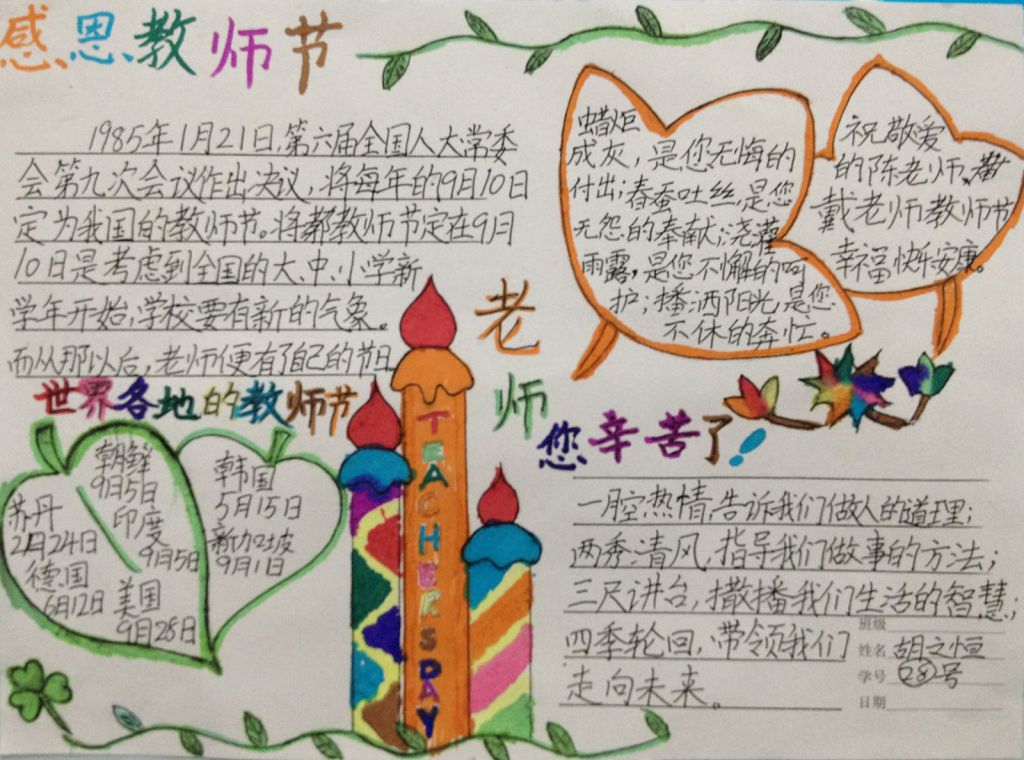 感恩教师节
1985年1月21日,第六届全国人大常委
会第九次会议作出决议,将每年的9月10日
定为我国的教师节。将教师节定在9月
10日是考虑到全国的大、中、小学新
学年开始,学校要有新的气象。
而从那以后,老师便有了自己的节日
蜡炬
成灰,是您无悔的
付出;春蚕吐丝,是您
无怨的奉献;浇灌
雨露,是您不懈的呵
护;播洒阳光,是您
不休的奔忙。
祝敬爱
的陈老师、
戴老师教师节
幸福快乐安康。
老
师
您辛苦了!
世界各地的教师节
朝鲜
9月5日
苏丹
2月24日
印度
9月5日
德国
6月12日
美国
9月28日
韩国
5月15日
新加坡
9月1日
TEACHERSDAY
一腔热情,告诉我们做人的道理;
两季清风,指导我们做事的方法;
三尺讲台,撒播我们生活的智慧;
四季轮回,带领我们
走向未来。
班级
姓名 胡之恒
学号 28号
日期